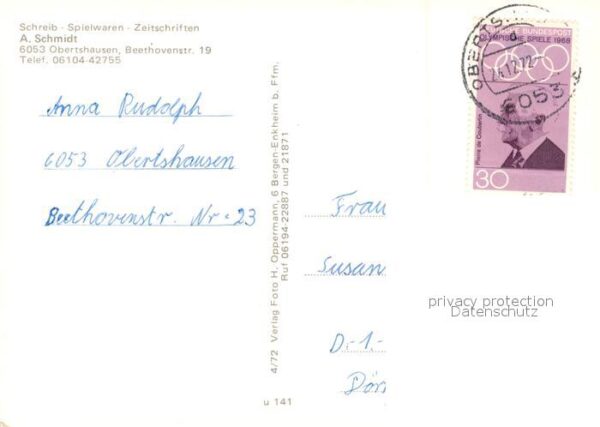 Schreib - Spielwaren - Zeitschriften
A. Schmidt
6053 Obertshausen, Beethovenstr. 19
Telef. 06104-42755
Anna Rudolph
6053 Obertshausen
Beethovenstr. Nr. 23
4/72 Verlag Foto H. Oppermann, 6 Bergen-Enkheim b. Ffm.
Ruf 06194-22887 und 21871
u 141
BUNDESPOST
OLYMPISCHE SPIELE 1968
Pierre de Coubertin
30
OBERTS
6053
d
Frau
Susan
D-1-
Dör
privacy protection
Datenschutz